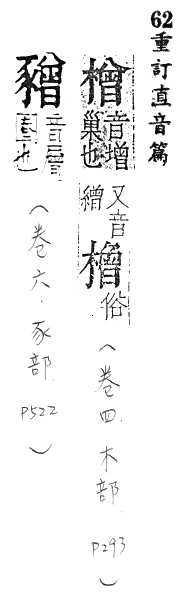 62重訂直音篇
橧音增巢也又音繒橧俗(卷四.木部 P293)
音層 也(卷六.豕部 P522)